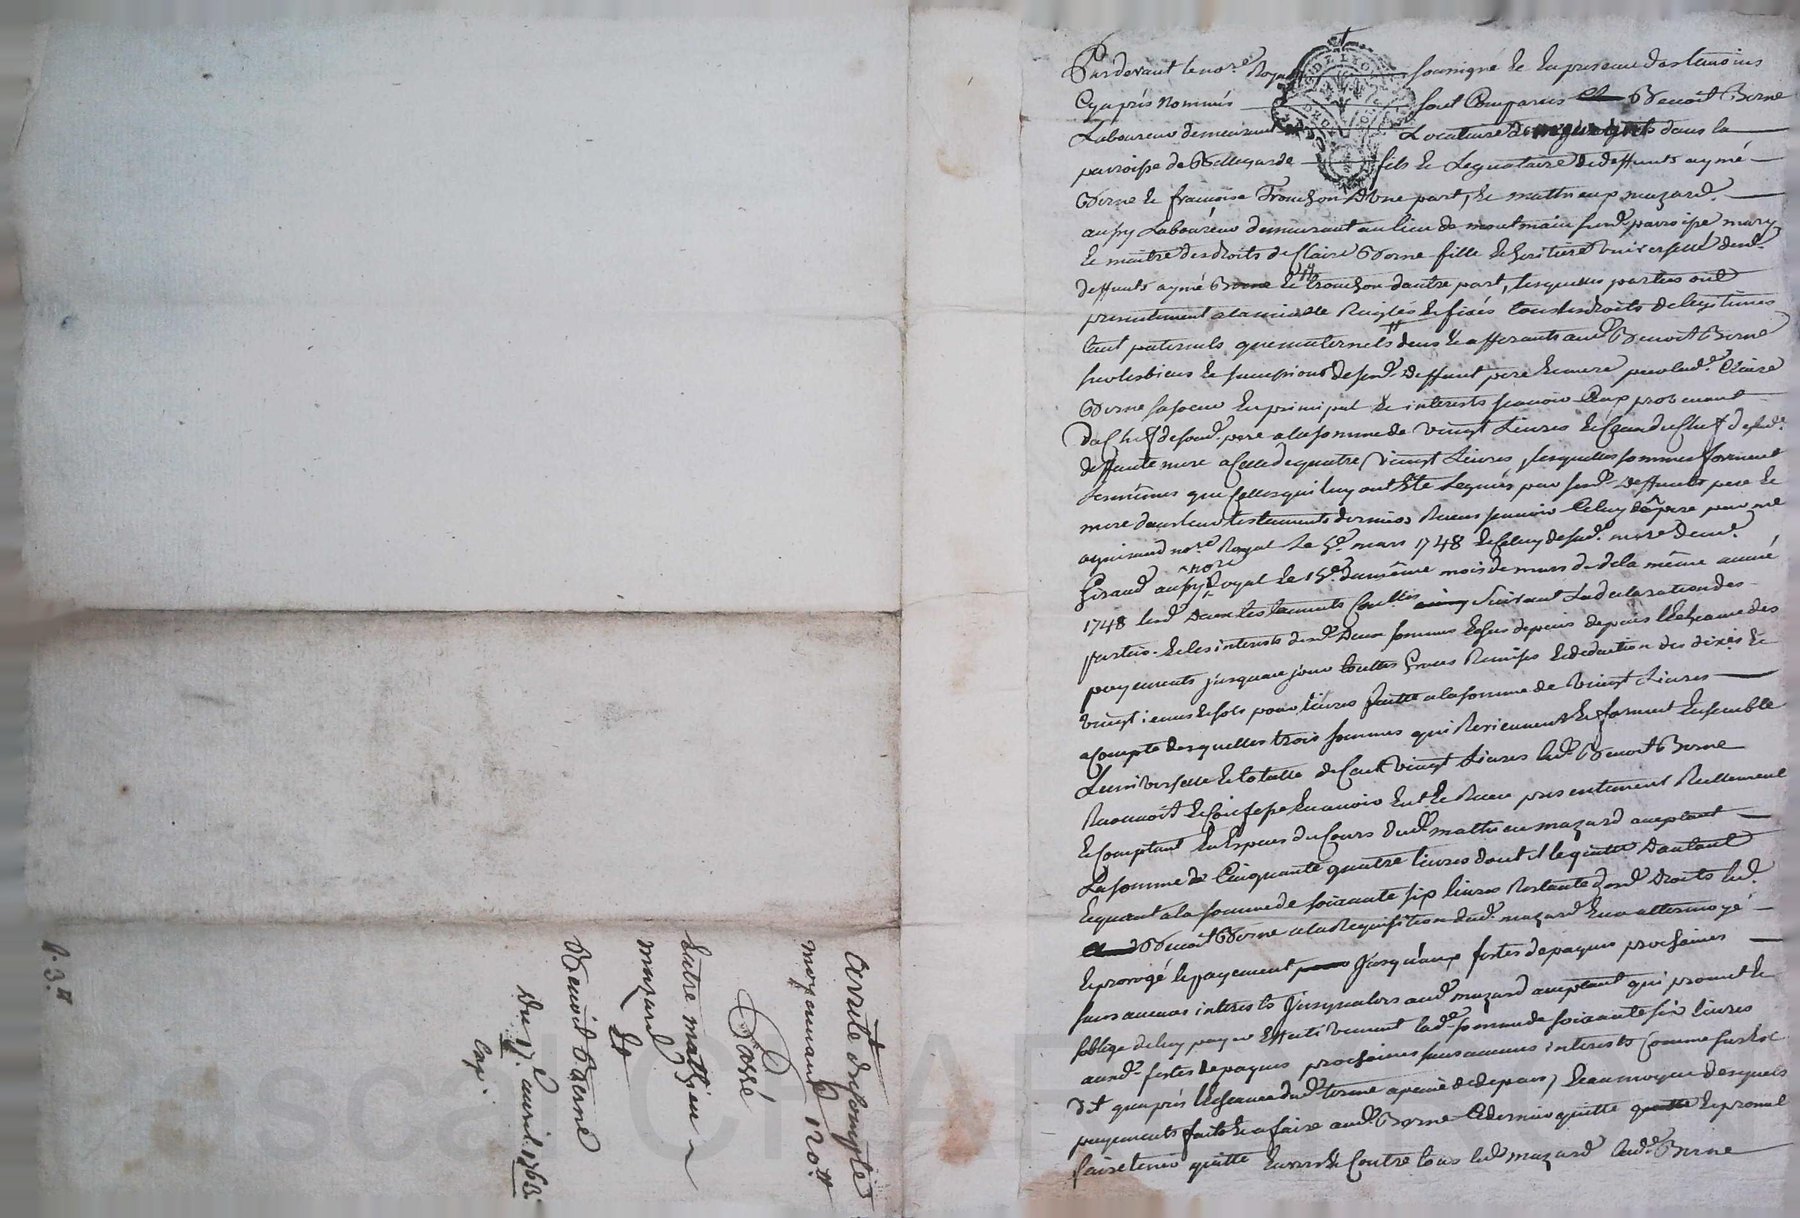 Pardevant le nore Royal soussigné et en presence des temoins
Cy après nommés sont Comparus Benoit Berne
Laboureur demeurant Locataire dans la
parroisse de Bellegarde fils et Legataire de deffunts aymé
Berne et francoise Tronchon d'une part, et mathieu mazard
aussy Laboureur demeurant au lieu de montmain susde parroisse mary
et maitre des droits de Claire Berne fille et heritiere universelle desd.
deffunts aymé Berne et tronchon d'autre part, lesquelles parties ont
presentement a lamiable Reiglés et fixés tous les droits de legitimes
tant paternels que maternels deus et afferants aud. Benoit Berne
sur les biens et successions de sesd. deffunt pere et mere par lad. Claire
Berne sa soeur en principal et interests scavoir Ceux provenant
du Chef de sond. pere a la somme de vingt Livres et Ceux du Chef de sad.
deffunte mere a Celle de quatre vingt Livres, lesquelles sommes forment
Les mêmes que Celles qui luy ont Eté Leguées par sesd. deffunts pere et
mere dans leur testaments dernier Receus scavoir Celuy du pere par me
nore Royal Le 5e mars 1748 et Celuy de sad. mere de me.
Giraud aussy nore Royal le 15e du même mois de mars de la même année
1748 lesd. deux testaments Conllés suivant La declaration des
parties. et les interests desd. deux sommes depuis depuis l'Echeance des
payements jusqua ce jour touttes graces Remises et deduction des dixes et
vingtiemes et sols pour livres faitte a la somme de vingt Livres
a Compte desquelles trois sommes qui Reviennent et forment Ensemble
L'universelle et totalle de Cent vingt Livres led. Benoit Berne
Reconnoit et Confesse En avoir Eut et Receu presentement Reellement
et Comptant En Especes du Cours dud. mathieu mazard acceptant
La somme de Cinquante quatre livres dont il le quitte d'autant
Et quant a la somme de soixante six livres Restante desd. droits led.
Benoit Berne a la Requisition dud. mazard En a attermoyé
et prorogé le payement jusqu'aux festes de paques prochaines
sans aucuns interests jusqualors aud. mazard acceptant qui promet et
soblige de luy payer Effectivement lad. somme de soixante six livres
auxd. festes de paques prochaines sans aucuns interests Comme sus est
dit qu'après l'Echeance dud. terme a peine de depens, et au moyen desquels
payements faits et a faire aud. Berne Ce dernier quitte et promet
faire tenir quitte Envers et Contre tous led. mazard lad. Berne
arrêté de Compte
moyennant 120 tt
Passé
Entre mathieu
mazard
Et
Benoit Berne
Du 17e avril 1763
Exp.